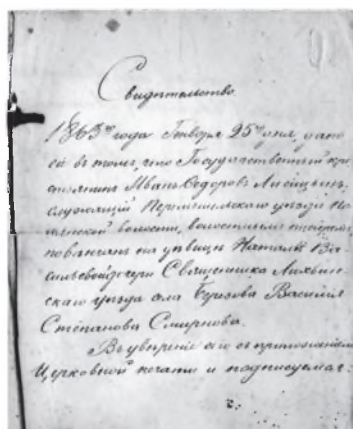 Свидетельство
1863го года Генваря 25го дня, дано
сей въ томъ, что Государственный кре
стьянинъ Иванъ Ѳедоровъ Лисицынъ,
служащій Перемышльскаго уѣзда
волости, волостнымъ писаремъ,
повѣнчанъ на дѣвицѣ Наталіи Ва
сильевой дочери Священника Лихвин
скаго уѣзда села Березова Василія
Степанова Смирнова.
Въ увѣреніе сего съ приложеніемъ
Церковной печати и подписуемся: